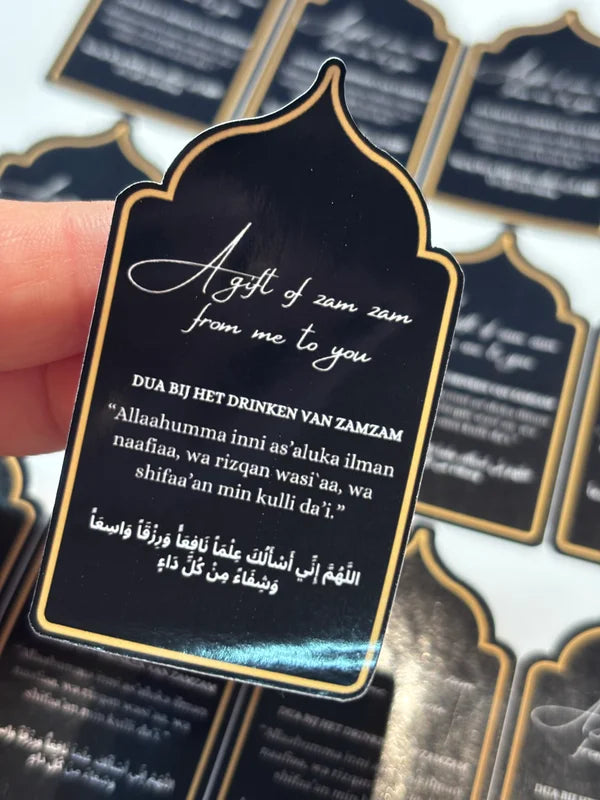 A gift of zam zam
from me to you
DUA BIJ HET DRINKEN VAN ZAMZAM
“Allaahumma inni as’aluka ilman
naafiaa, wa rizqan wasi`aa, wa
shifaa’an min kulli da’i.”
اللَّهُمَّ إِنِّي أَسْأَلُكَ عِلْمَاً نَافِعَاً وَرِزْقَاً وَاسِعَاً
وَشِفَاءً مِنْ كُلِّ دَاءٍ